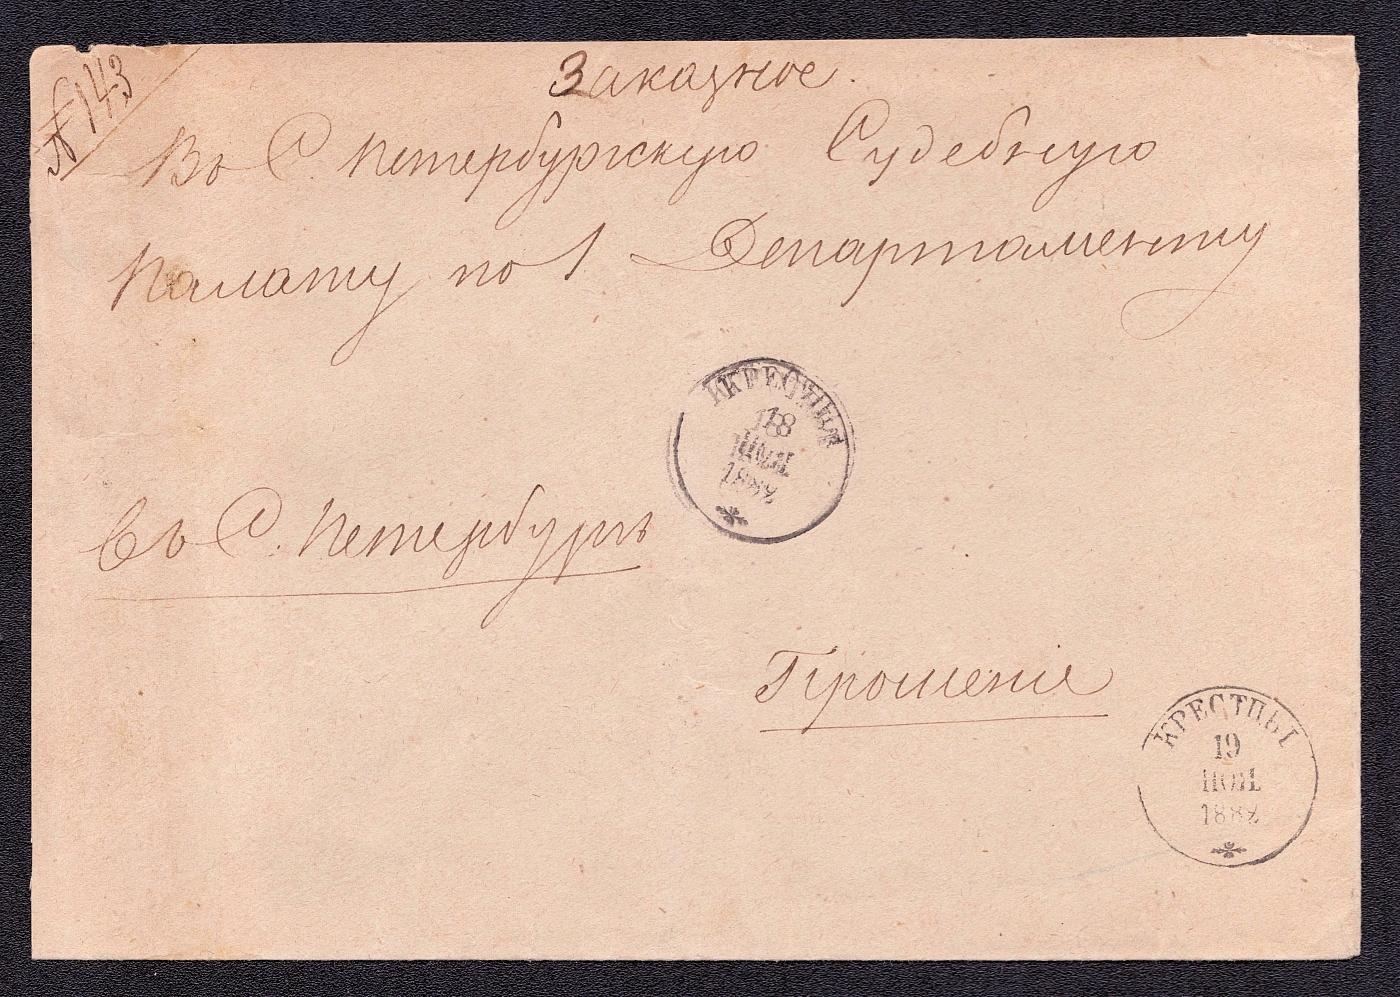 № 143
Заказное.
Въ С. Петербургскую Судебную
Палату по 1 Департаменту
КРЕСТЦЫ
18
ІЮЛ
1882
Въ С. Петербургъ
Прошеніе
КРЕСТЦЫ
19
ІЮЛ
1882